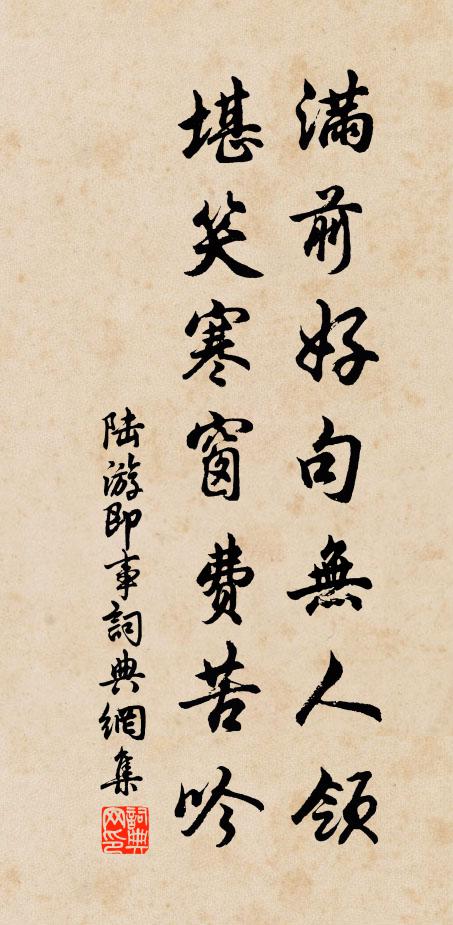 滿前好句無人領
堪笑寒窗費苦吟
陸游即事詞典網集
詞典
网印